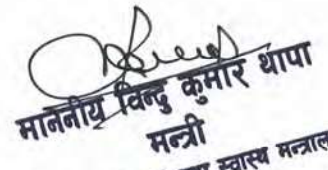 माननीय विन्दु कुमार थापा
मन्त्री
स्वास्थ मन्त्राल